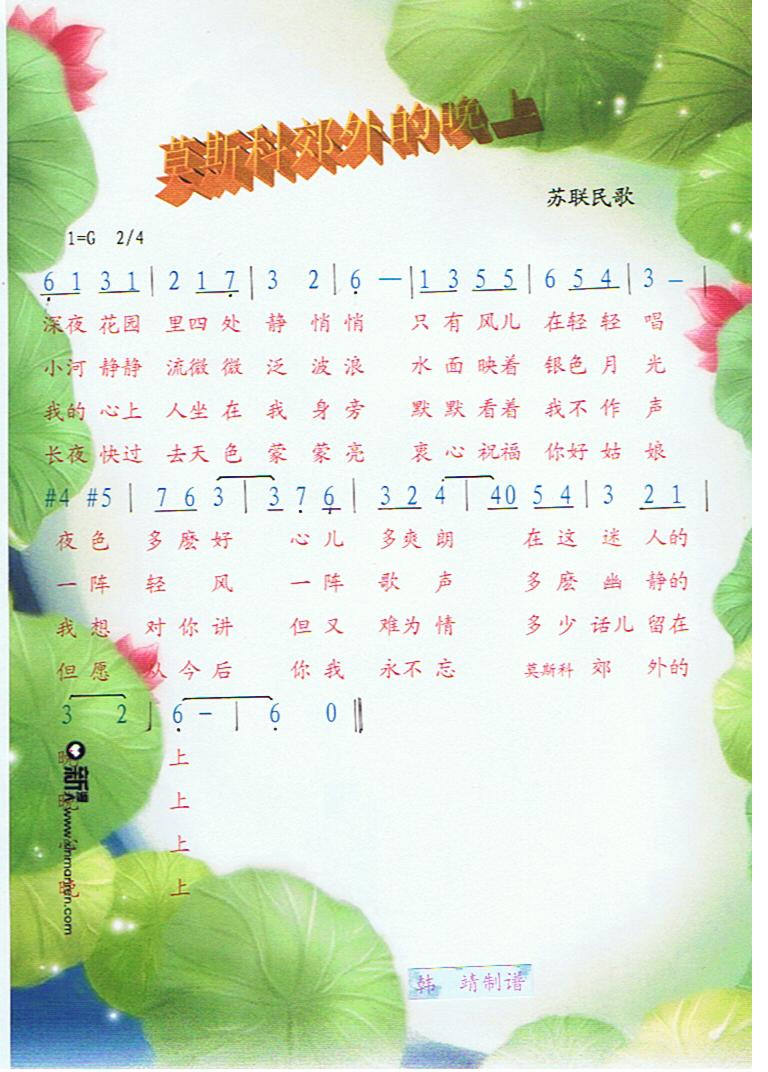 莫斯科郊外的晚上
苏联民歌
1=G 2/4
6 1 3 1 | 2 1 7 | 3 2 | 6 — | 1 3 5 5 | 6 5 4 | 3 — |
深夜 花园 里四 处 静 悄 悄 只 有 风儿 在轻 轻 唱
小河 静静 流微 微 泛 波 浪 水 面 映着 银色 月 光
我的 心上 人坐 在 我 身 旁 默 默 看着 我不 作 声
长夜 快过 去天 色 蒙 蒙 亮 衷 心 祝福 你好 姑 娘
#4 #5 | 7 6 3 | 3 7 6 | 3 2 4 | 40 5 4 | 3 2 1 |
夜 色 多 麽 好 心 儿 多爽 朗 在 这 迷 人的
一 阵 轻 风 一 阵 歌 声 多 麽 幽 静的
我 想 对 你 讲 但 又 难为 情 多 少 话儿 留在
但 愿 从 今 后 你 我 永不 忘 莫斯科 郊 外的
3 2 | 6 — | 6 0 ‖
上
上
上
晚 上
新
www.xinmanyuan.com
韩 靖制谱